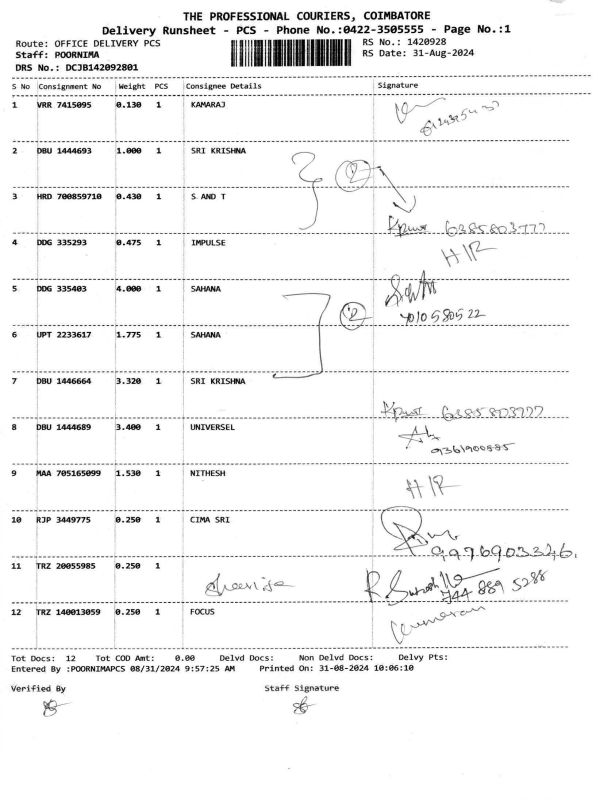 THE PROFESSIONAL COURIERS, COIMBATORE
Delivery Runsheet - PCS - Phone No.:0422-3505555 - Page No.:1
Route: OFFICE DELIVERY PCS RS No.: 1420928
Staff: POORNIMA RS Date: 31-Aug-2024
DRS No.: DCJB142092801
S No Consignment No Weight PCS Consignee Details Signature
1 VRR 7415095 0.130 1 KAMARAJ
2 DBU 1444693 1.000 1 SRI KRISHNA
2
3 HRD 700859710 0.430 1 S AND T
6385803777
4 DDG 335293 0.475 1 IMPULSE H/R
5 DDG 335403 4.000 1 SAHANA
2 7010580522
6 UPT 2233617 1.775 1 SAHANA
7 DBU 1446664 3.320 1 SRI KRISHNA
6385803777
8 DBU 1444689 3.400 1 UNIVERSEL
9361900885
9 MAA 705165099 1.530 1 NITHESH H/R
10 RJP 3449775 0.250 1 CIMA SRI
9976903346.
11 TRZ 20055985 0.250 1
744 889 5288
12 TRZ 140013059 0.250 1 FOCUS Kumaran
Tot Docs: 12 Tot COD Amt: 0.00 Delvd Docs: Non Delvd Docs: Delvy Pts:
Entered By :POORNIMAPCS 08/31/2024 9:57:25 AM Printed On: 31-08-2024 10:06:10
Verified By Staff Signature